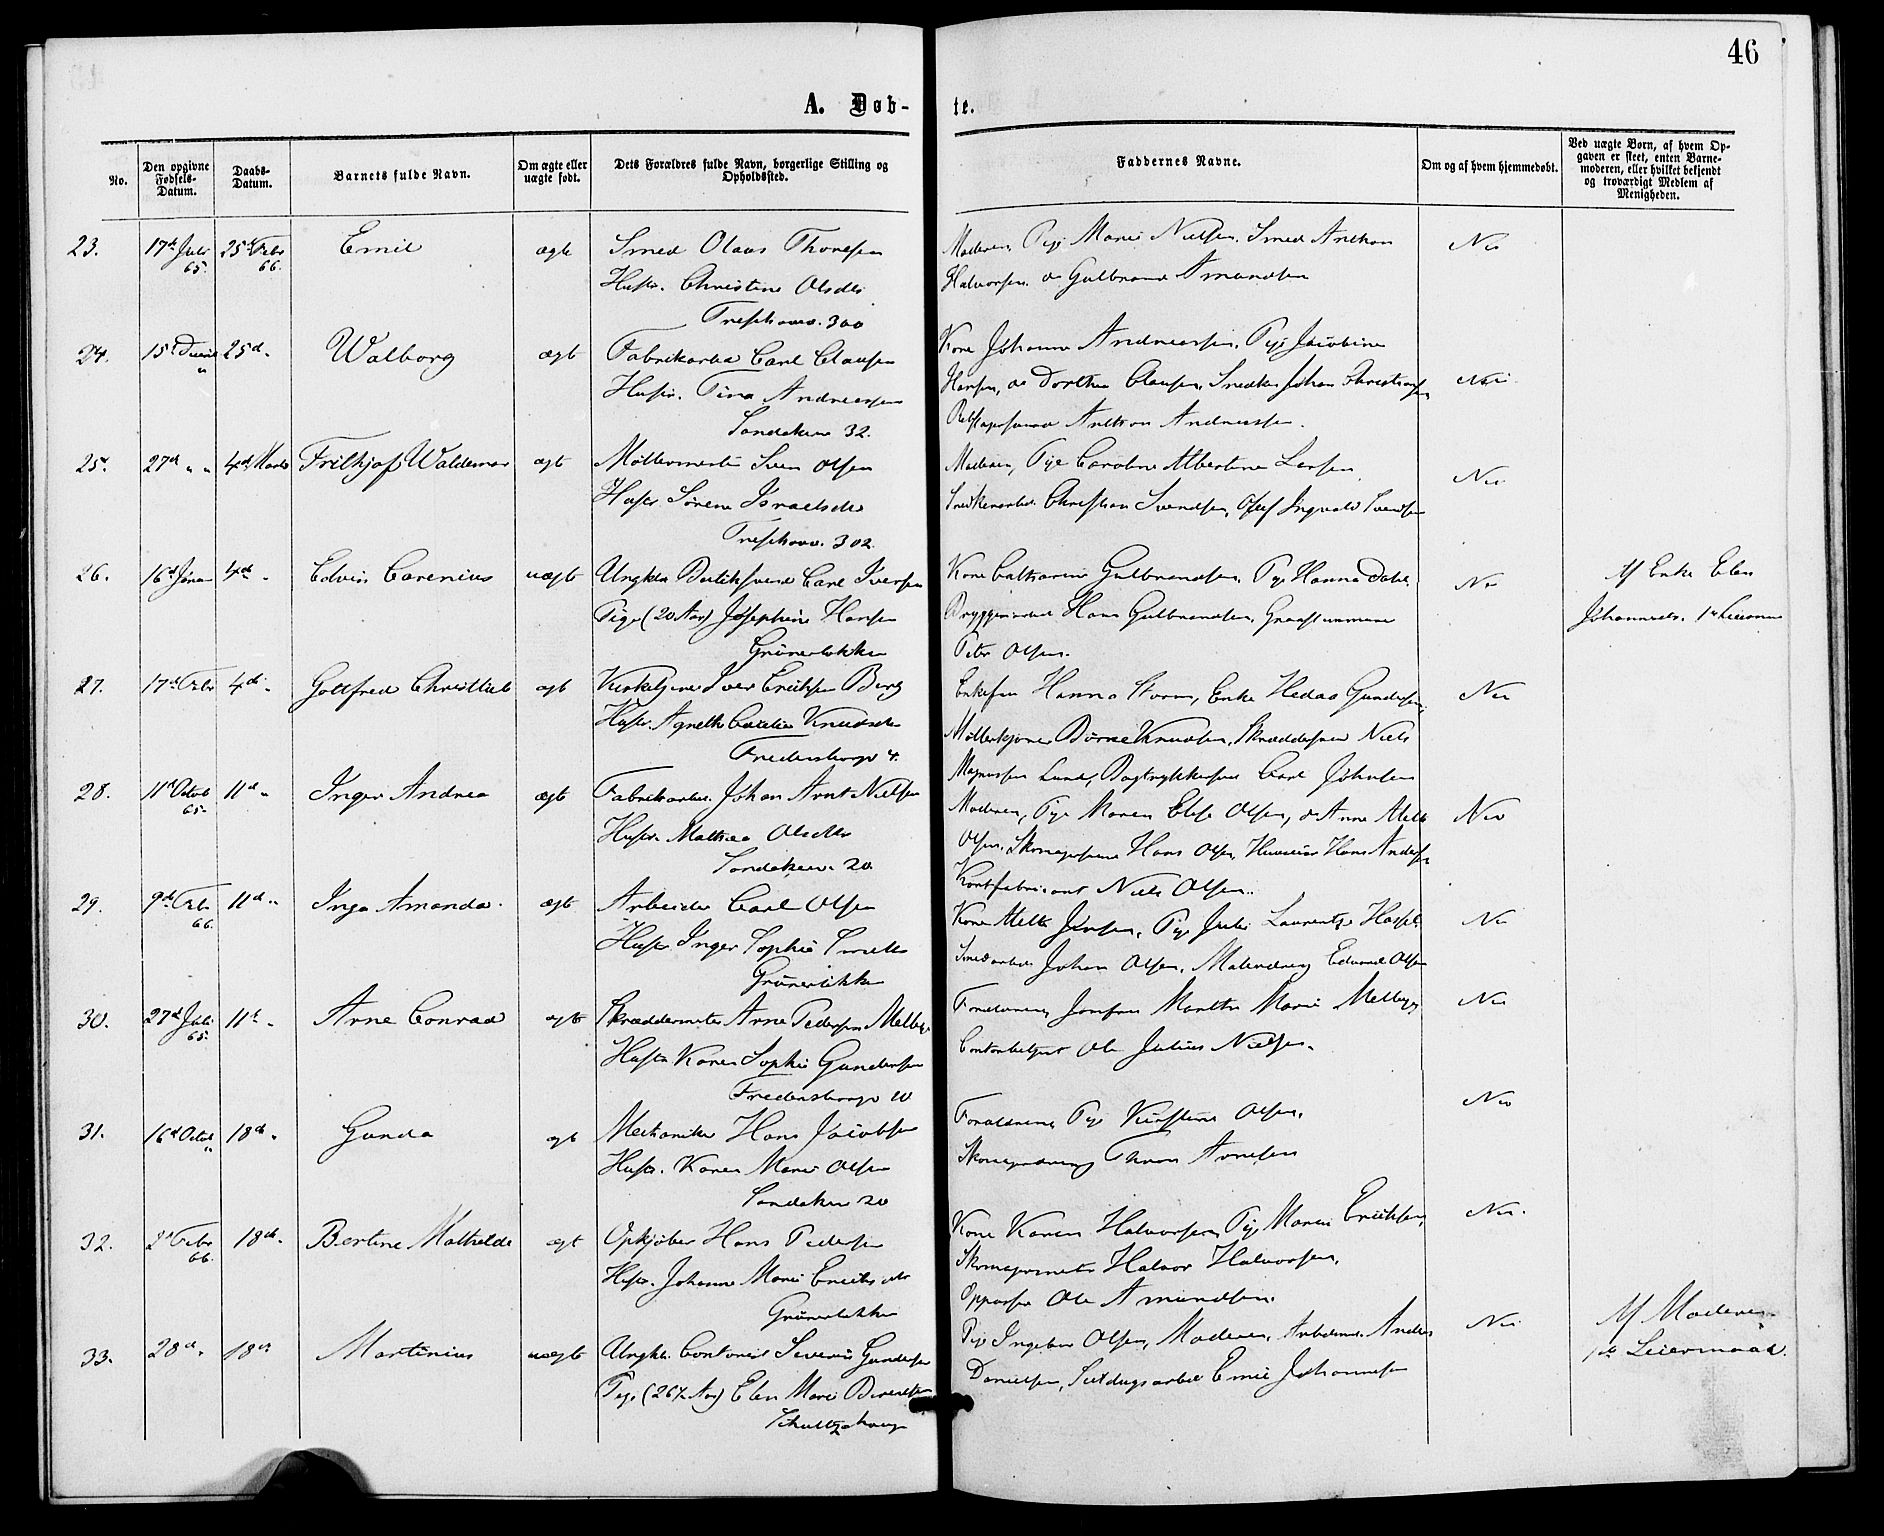 46
A. Døb-
te.
No.
Den opgivne Fødsels-Datum.
Daabs-Datum.
Barnets fulde Navn.
Om ægte eller uægte født.
Dets Forældres fulde Navn, borgerlige Stilling og Opholdssted.
Faddernes Navne.
Om og af hvem hjemmedøbt.
Ved uægte Børn, af hvem Opgaven er skeet, enten Barnemoderen, eller hvilket bekjendt og troværdigt Medlem af Menigheden.
23. 17de Juli 65. 25de Febr 66. Emil ægte Smed Olaus Thoresen
Hustr. Christine Olsdtr
300
Moderen, Pige Marie Nielsen. Smed Anthon
Halvorsen. do Gulbrand Amundsen
Nei
24. 15de 25d. Walborg ægte Fabrikarbd Carl Clausen
Hustr. Tina Andreasen
Sandakerv 32.
Kone Johanne Andreassen, Pige Jacobine
Hansen, do Dorthea Clausen, Snedker Johan Christiansen
Anthon Andreassen.
Nei
25. 27de " " 4de Marts Frithjof Waldemar ægte Møllermester Sven Olsen
Hustr. Sørine Israelsdtr
302.
Moderen, Pige Caroline Albertine Larsen
Snedkerarbd. Christian Svendsen, Ingvald Svendsen
Nei
26. 16de Janr 4de " Edvin Carenius uægte Ungkl. Carl Iversen
Pige (20 Aar) Josephine Hansen
Grünerløkken
Kone Cathrine Gulbrandsen, Pige Hanna Dahl.
Hans Gulbrandsen,
Peter Olsen.
Nei
Af Enke Elen
Johannesdr. 1ste Leierm
27. 17de Febr 4de " Gotfred Christlieb ægte Kirketjener Iver Eriksen Berg
Hustr. Agnethe Cecilie Knudsen
Fredensborgv 4.
Hanna Storm, Enke Hedda Gundersen,
Knudsen, Skræddersvend Niels
Magnussen Lund, Bogtrykkersvend Carl Johnsen
Nei
28. 11te Octob 65. 11te " Inger Andrea ægte Fabrikarbd. Johan Arnt Nielsen
Hustr. Mathea Olsdtr
Sandakerv. 20
Moderen, Pige Maren Elise Olsen, do Anne Mette
Olsen. Skomagersvend Hans Olsen, Hans Andersen
Kortfabricant Niels Olsen.
Nei
29. 9de Febr 66. 11te " Inga Amanda. ægte Arbeider Carl Olsen
Hustr Inger Sophie
Grünerløkken
Kone Mette Jensen, Pige Julie
Smedarbd. Johan Olsen. Malerdreng Edvard Olsen
Nei
30. 27de Juli 65. 11te " Arne Conrad ægte Skræddermester Arne Pedersen Melbye
Hustr Karen Sophie Gundersen
Fredensborgv 10
Forældrene, Jomfru Marthe Marie Melbye,
Contorbetjent Ole Julius Nielsen.
Nei
31. 16de Octob " 18de " Gunda ægte Mechaniker Hans Jacobsen
Hustr. Karen Marie Olsen
Sandakerv 20
Forældrene, Pige Kirstine Olsen,
Skomagerdreng Arnesen
Nei
32. 2d Febr 66. 18de " Bertine Mathilde ægt Opkjøber Hans Pedersen
Hustr. Johanne Marie
Grünerløkken
Kone Karen Halvorsen, Pige Maren Eriksen,
Skomagermester Halvor Halvorsen,
Oppasser Ole Amundsen.
Nei
33. 28de " 18de Martinius uægte Ungkl. Contorist Severin Gundersen
Pige (26½ Aar) Elen Marie Berentsen
Pige Ingebor Olsen, Moderen, Anders
Danielsen, Emil Johannesen
Nei
Af Moderen
1ste Leiermaal.